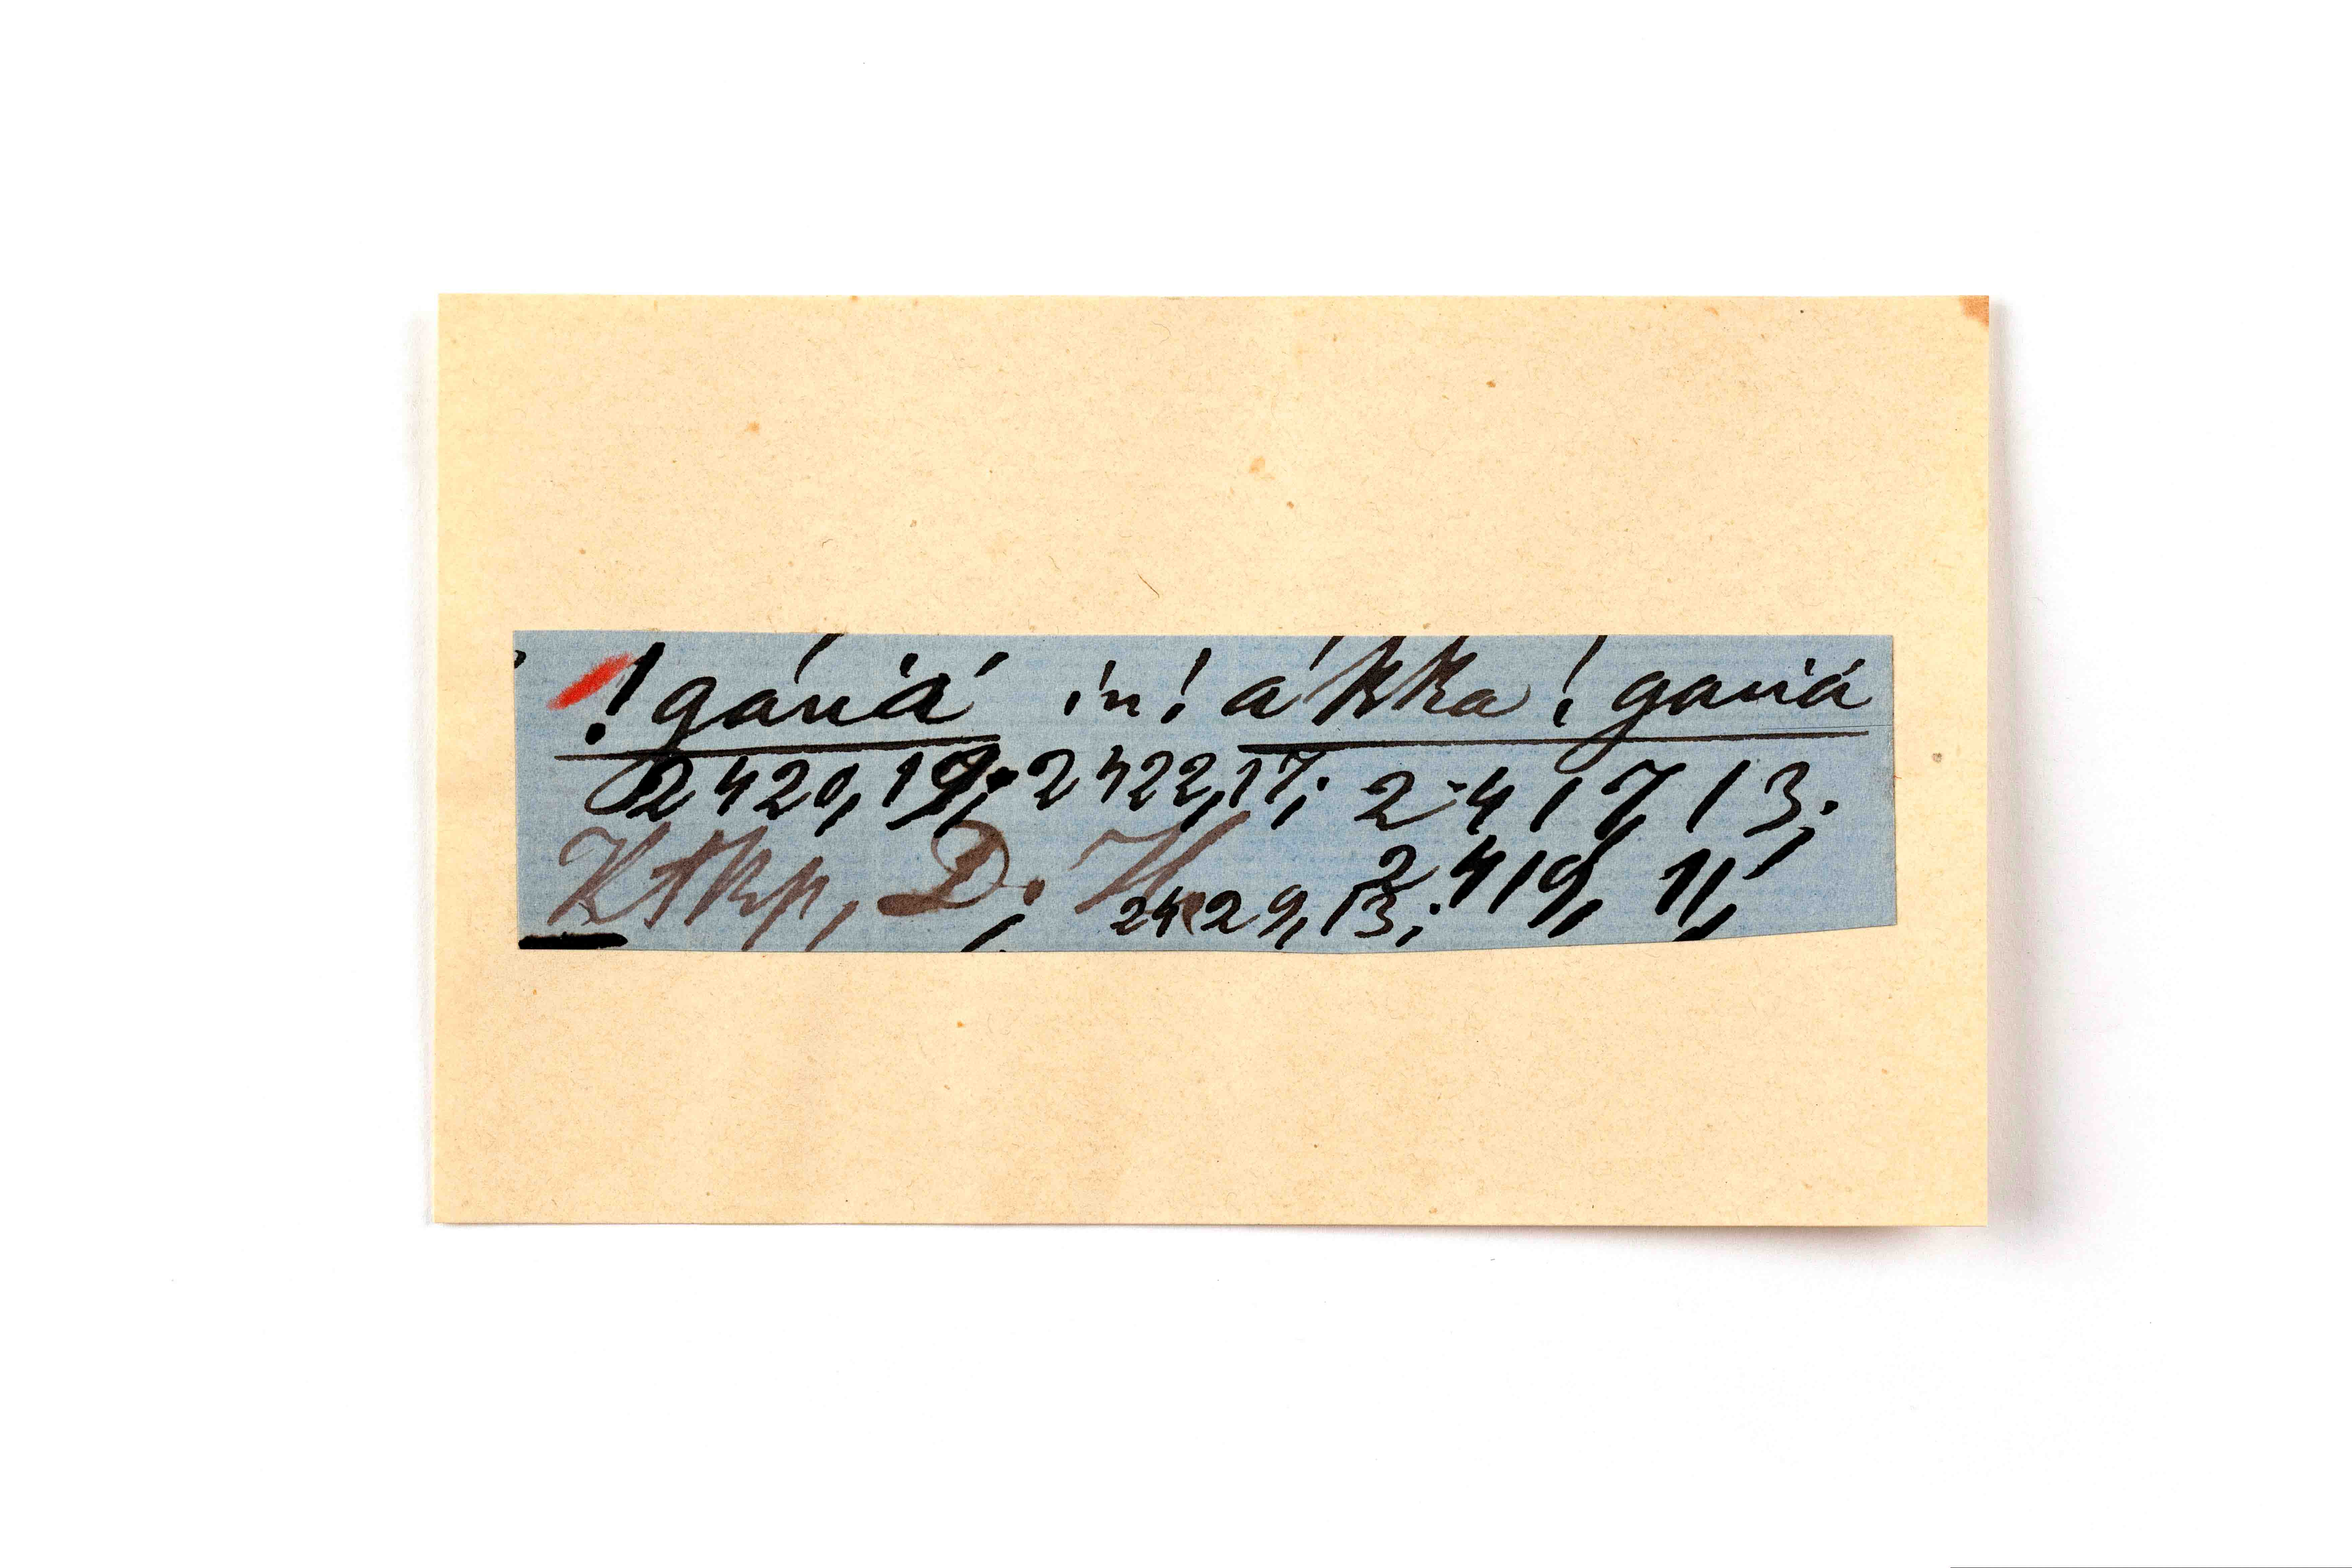 !gániá in! ákka !ganiá
2420, 19; 2422, 17; 2417, 13;
Ktkp, D. H. 2429, 13; 2419, 11,